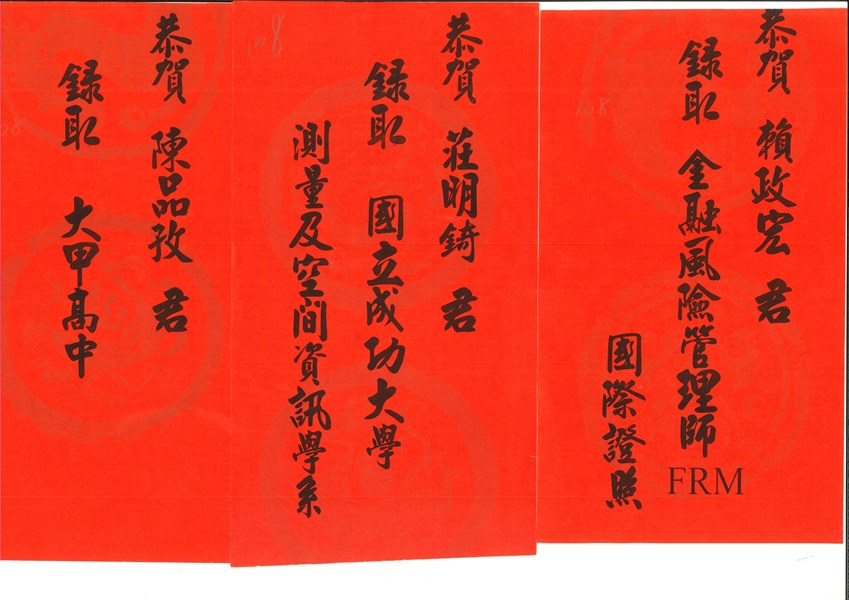 恭賀 賴政宏 君
錄取 金融風險管理師
FRM
國際證照
恭賀 莊明錡 君
錄取 國立成功大學
測量及空間資訊學系
108
恭賀 陳品孜 君
錄取 大甲高中